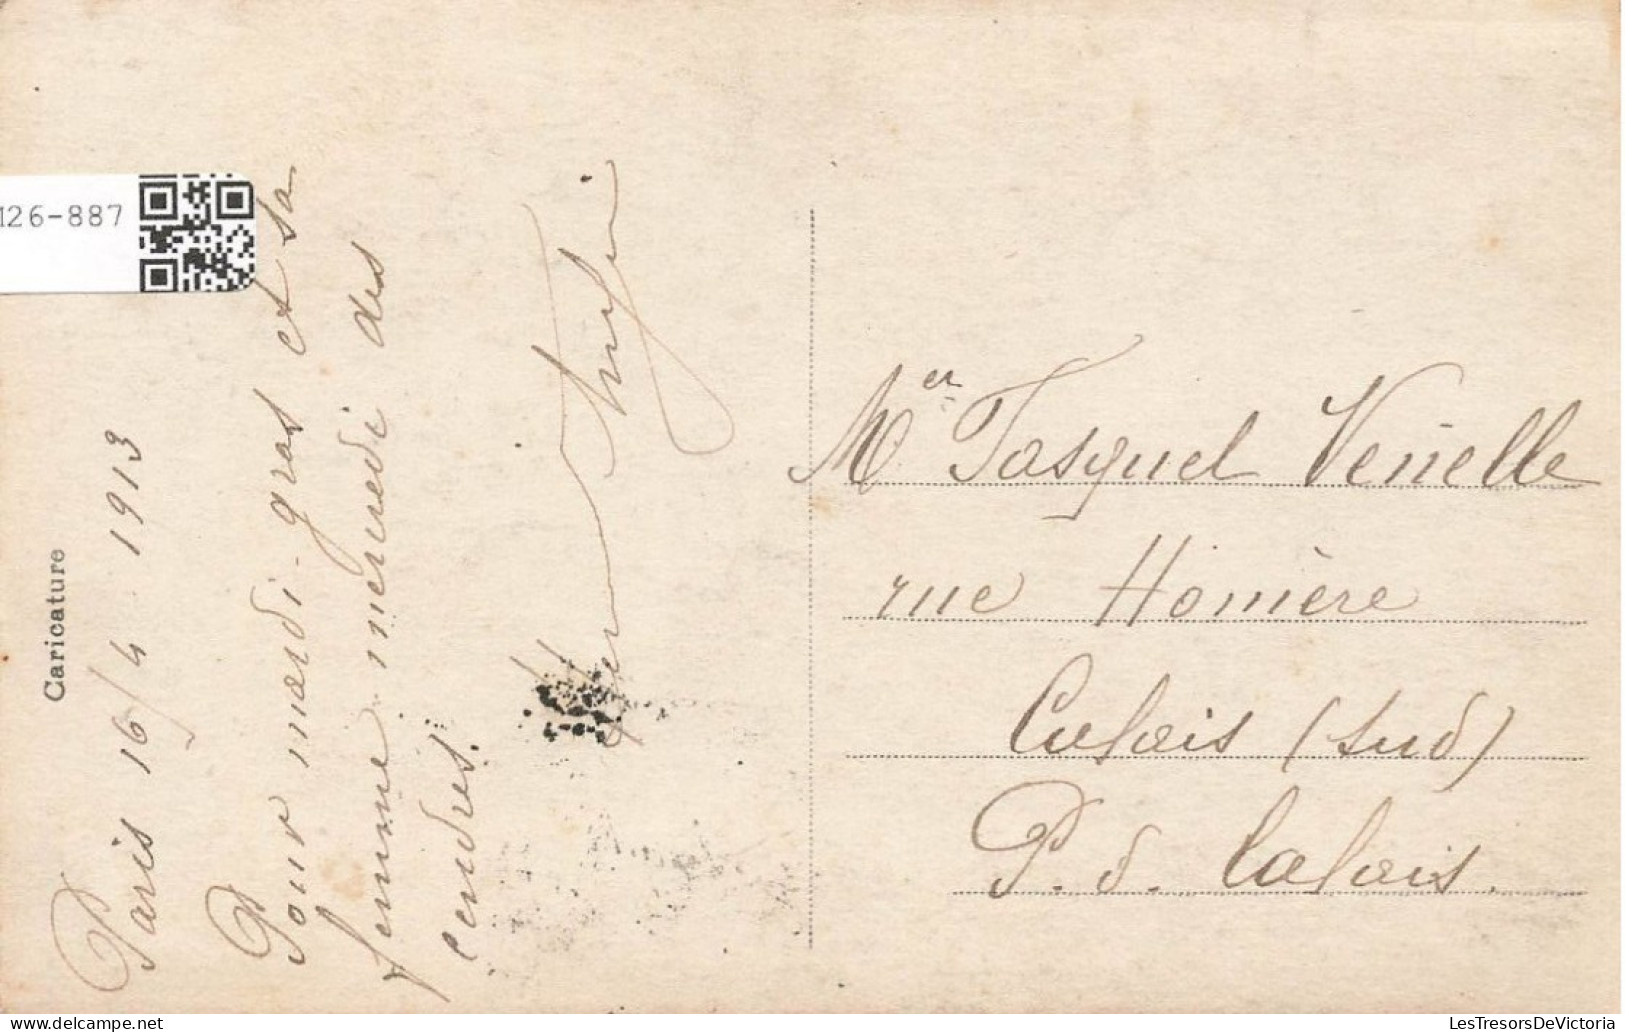 Caricature
Paris 16/4 1913
Pour mardi-gras et sa
femme mercredi des
cendres.
Mer Tasquel Venelle
rue Homère
Calais (sud)
P. d. Calais.
126-887
LesTresorsDeVictoria